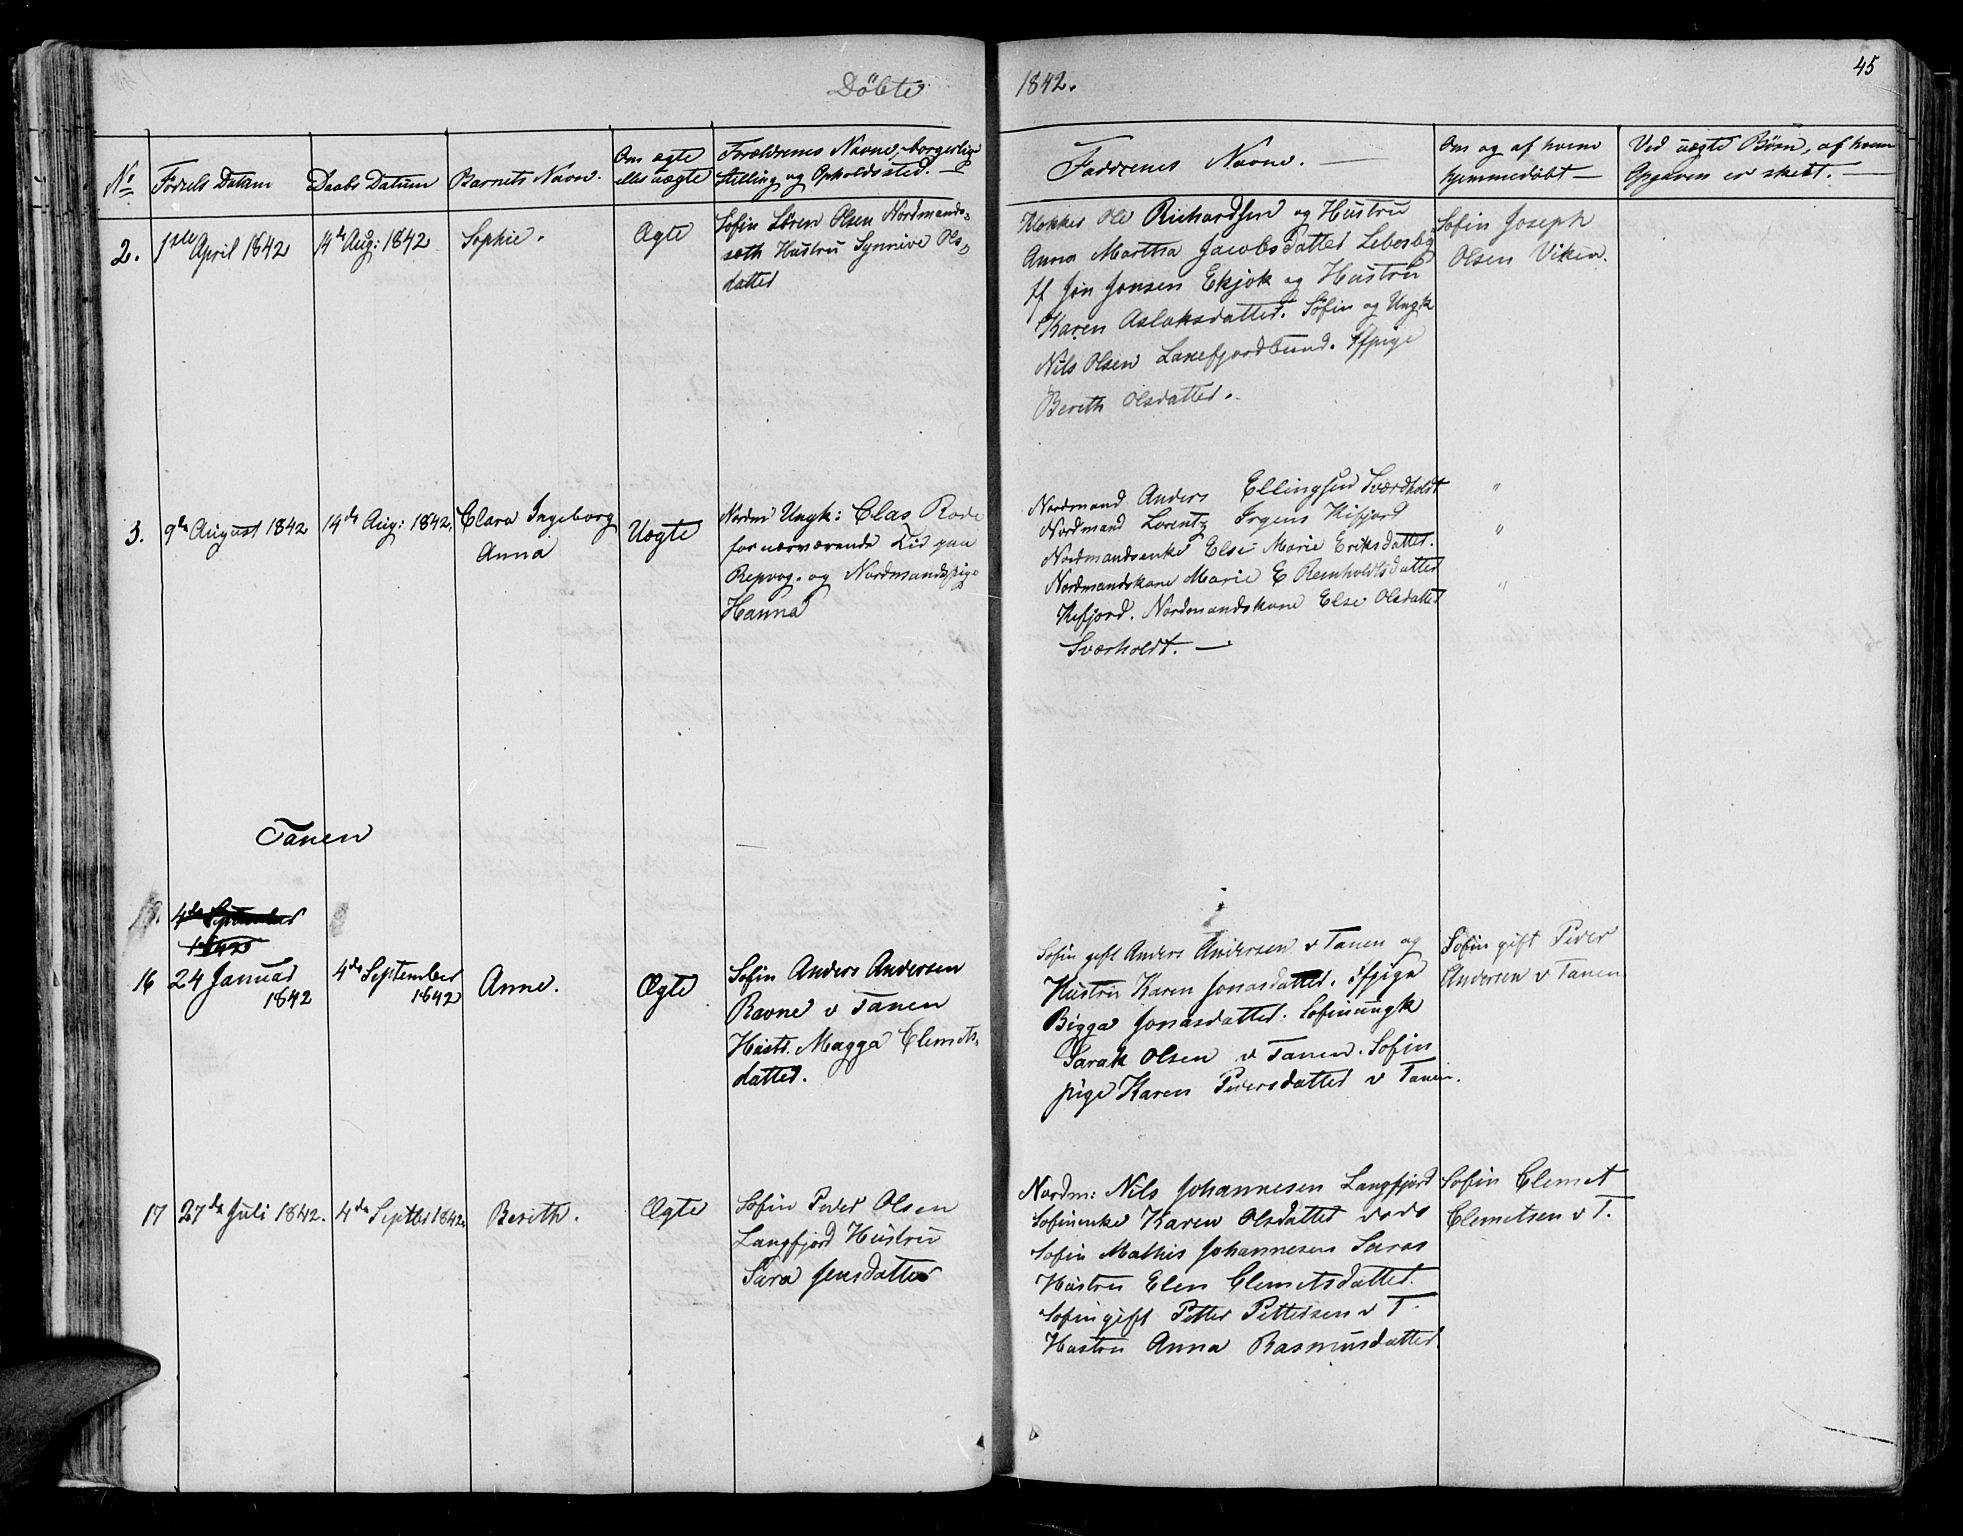 Döbte 1842. 45
No
Fødsels Datum
Daabs Datum
Barnets Navn.
Om ægte
eller uægte
Forældrenes Navne, borgerlige
Stilling og Opholdssted.
Faddrenes Navne.
Om og af hvem
hjemmedøbt
Ved uægte Børn, af hvem
Opgaven er skeet.
2.
1ste April 1842
14de Aug: 1842
Sophie.
Ægte
Sofin Sören Olsen Nordmands-
sæth Hustru Synnive Ols-
datter
Klokker Ole Richardsen og Hustru
Anna Martha Jacobsdatter Lebesby
Sf Jon Jonsen Ekjok og Hustru
Karen Aslaksdatter. Söfin og Ungk
Nils Olsen Laxefjordbund. Sfpige
Bereth Olsdatter.
Sofin Joseph
Olsen Viken.
3.
9de August 1842
14de Aug: 1842.
Clara Ingeborg
Anna
Uægte
Nordm Ungk: Clas Rode
for nærværende Tid paa
Repvog. og Nordmandspige
Hanna
Nordmand Anders Ellingsen Sværdholdt
Nordmand Lorentz Irgens Kifjord
Nordmandsenke Else Marie Eriksdatter.
Nordmandskone Marie E Remholdtsdatter
Kifjord. Nordmandskone Else Olsdatter
Sværholdt.
"
"
"
Tanen
4de September
1842
16
24 Januar
1842
4de September
1842
Anne.
Ægte
Sofin Anders Andersen
Ravne v Tanen
Hustr. Magga Clemets-
datter.
Sofin gift Anders Andersen v Tanen og
Hustru Karen Jonasdatter. Sfpige
Bigga Jonasdatter. Sofinungk
Sarak Olsen v Tanen. Sofin
pige Karen Pedersdatter v Tanen.
Sofin gift Peder
Andersen v Tanen
17
27de Juli 1842.
4de Septber 1842.
Bereth.
Ægte
Sofin Peder Olsen
Langfjord Hustru
Sara Jensdatter
Nordm: Nils Johannesen Langfjord
Sofinenke Karen Olsdatter
Sofin Mathis Johannesen
Hustru Elen Clemetsdatter.
Sofin gift Petter Pettersen v T.
Hustru Anna Rasmusdatter
Sofin Clemet
Clemetsen v T.